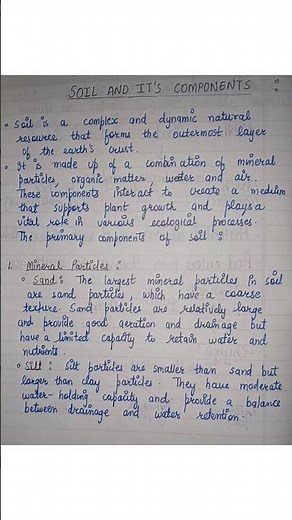 SOIL AND IT'S COMPONENTS :
• Soil is a complex and dynamic natural
resource that forms the outermost layer
of the earth's crust.
• It is made up of a combination of mineral
particles, organic matter, water and air.
These components interact to create a medium
that supports plant growth and plays a
vital role in various ecological processes.
The primary components of soil :
1. Mineral Particles :
• Sand : The largest mineral particles in soil
are sand particles, which have a coarse
texture. Sand particles are relatively large
and provide good aeration and drainage but
have a limited capacity to retain water and
nutrients.
• Silt : Silt particles are smaller than sand but
larger than clay particles. They have moderate
water-holding capacity and provide a balance
between drainage and water retention.